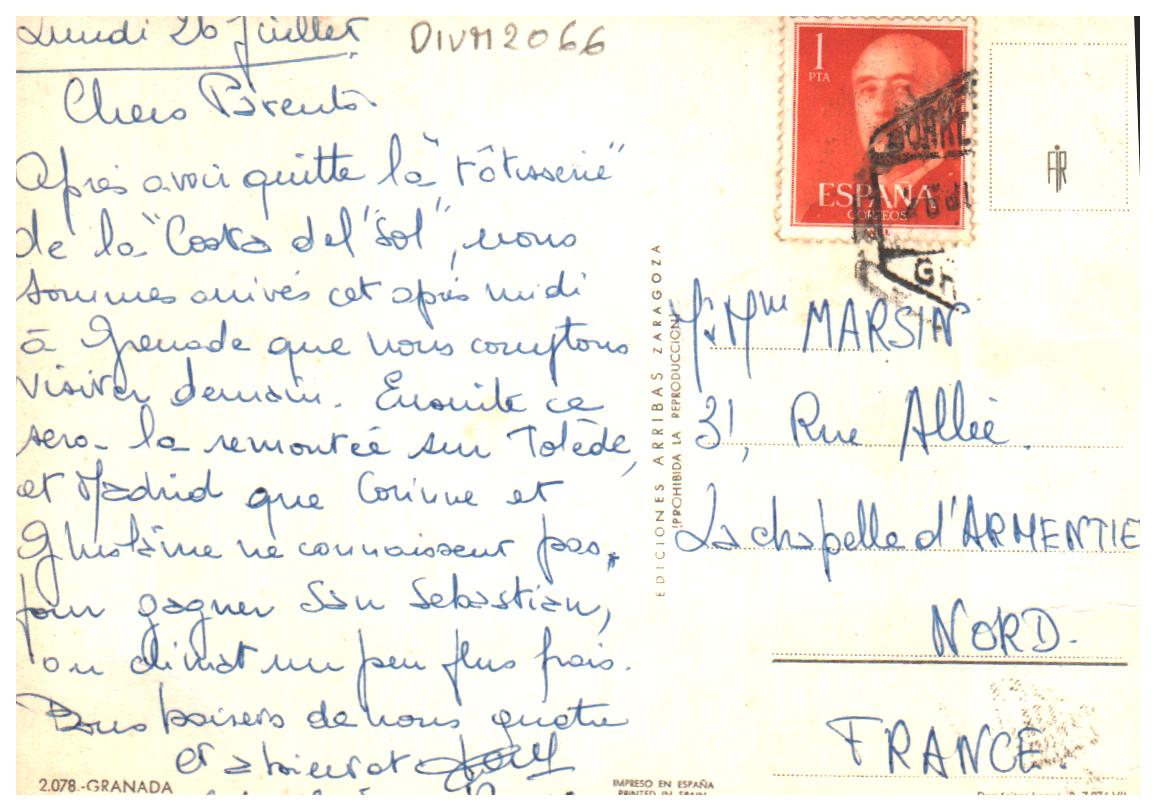 Lundi 26 Juillet
DIVM2066
Chers Parents
Après avoir quitté la "rôtisserie"
de la "Costa del "Sol", nous
sommes arrivés cet après midi
à Grenade que nous comptons
visiter demain. Ensuite ce
sera la remontée sur Tolède,
et Madrid que Corinne et
Ghislaine ne connaissent pas,
pour gagner San Sebastian,
au climat un peu plus frais.
Bons baisers de nous quatre
et à bientôt
2.078.-GRANADA
EDICIONES ARRIBAS ZARAGOZA
(PROHIBIDA LA REPRODUCCION)
IMPRESO EN ESPAÑA
PRINTED IN SPAIN
1
PTA
ESPAÑA
CORREOS
M. Mme MARSIN
31, Rue Allée.
La chapelle d'ARMENTIE
NORD.
FRANCE.